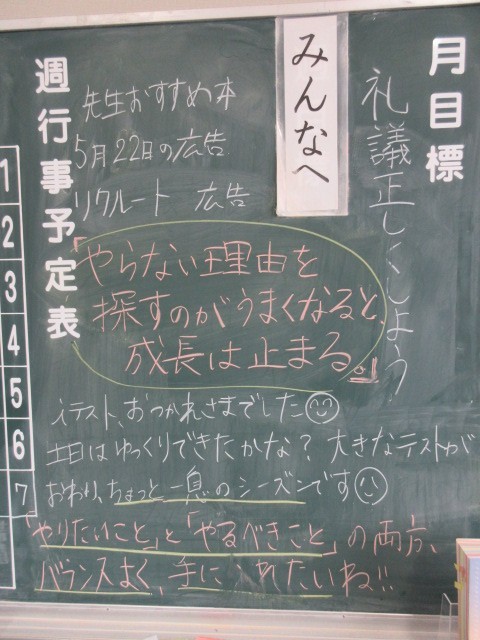 月目標
礼議正しくしよう
みんなへ
週行事予定表
1
2
3
4
5
6
7
先生おすすめ本
5月22日の広告
リクルート 広告
「やらない理由を
探すのがうまくなると、
成長は止まる。」
テスト、おつかれさまでした
土日はゆっくりできたかな? 大きなテストが
おわり、ちょっと一息のシーズンです
「やりたいこと」と「やるべきこと」の両方、
バランスよく、手に入れたいね!!